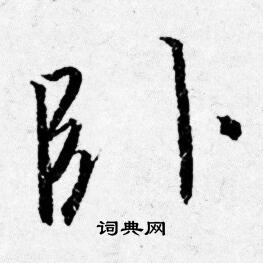 卧
词典网